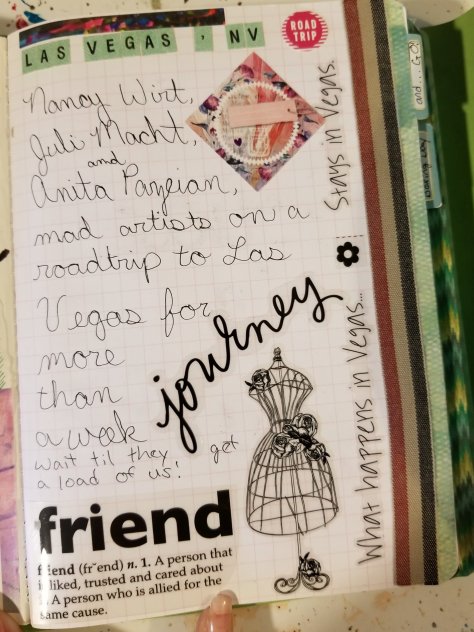 LAS VEGAS, NV
ROAD
TRIP
Nancy Wirt,
Juli Macht,
and
Anita Pazeian,
mad artists on a
roadtrip to Las
Vegas for
more
than
a week
wait til they get
a load of us!
journey
friend
friend (fr˘end) n. 1. A person that
is liked, trusted and cared about
A person who is allied for the
same cause.
What happens in Vegas...
Stays in Vegas.
and... GO!